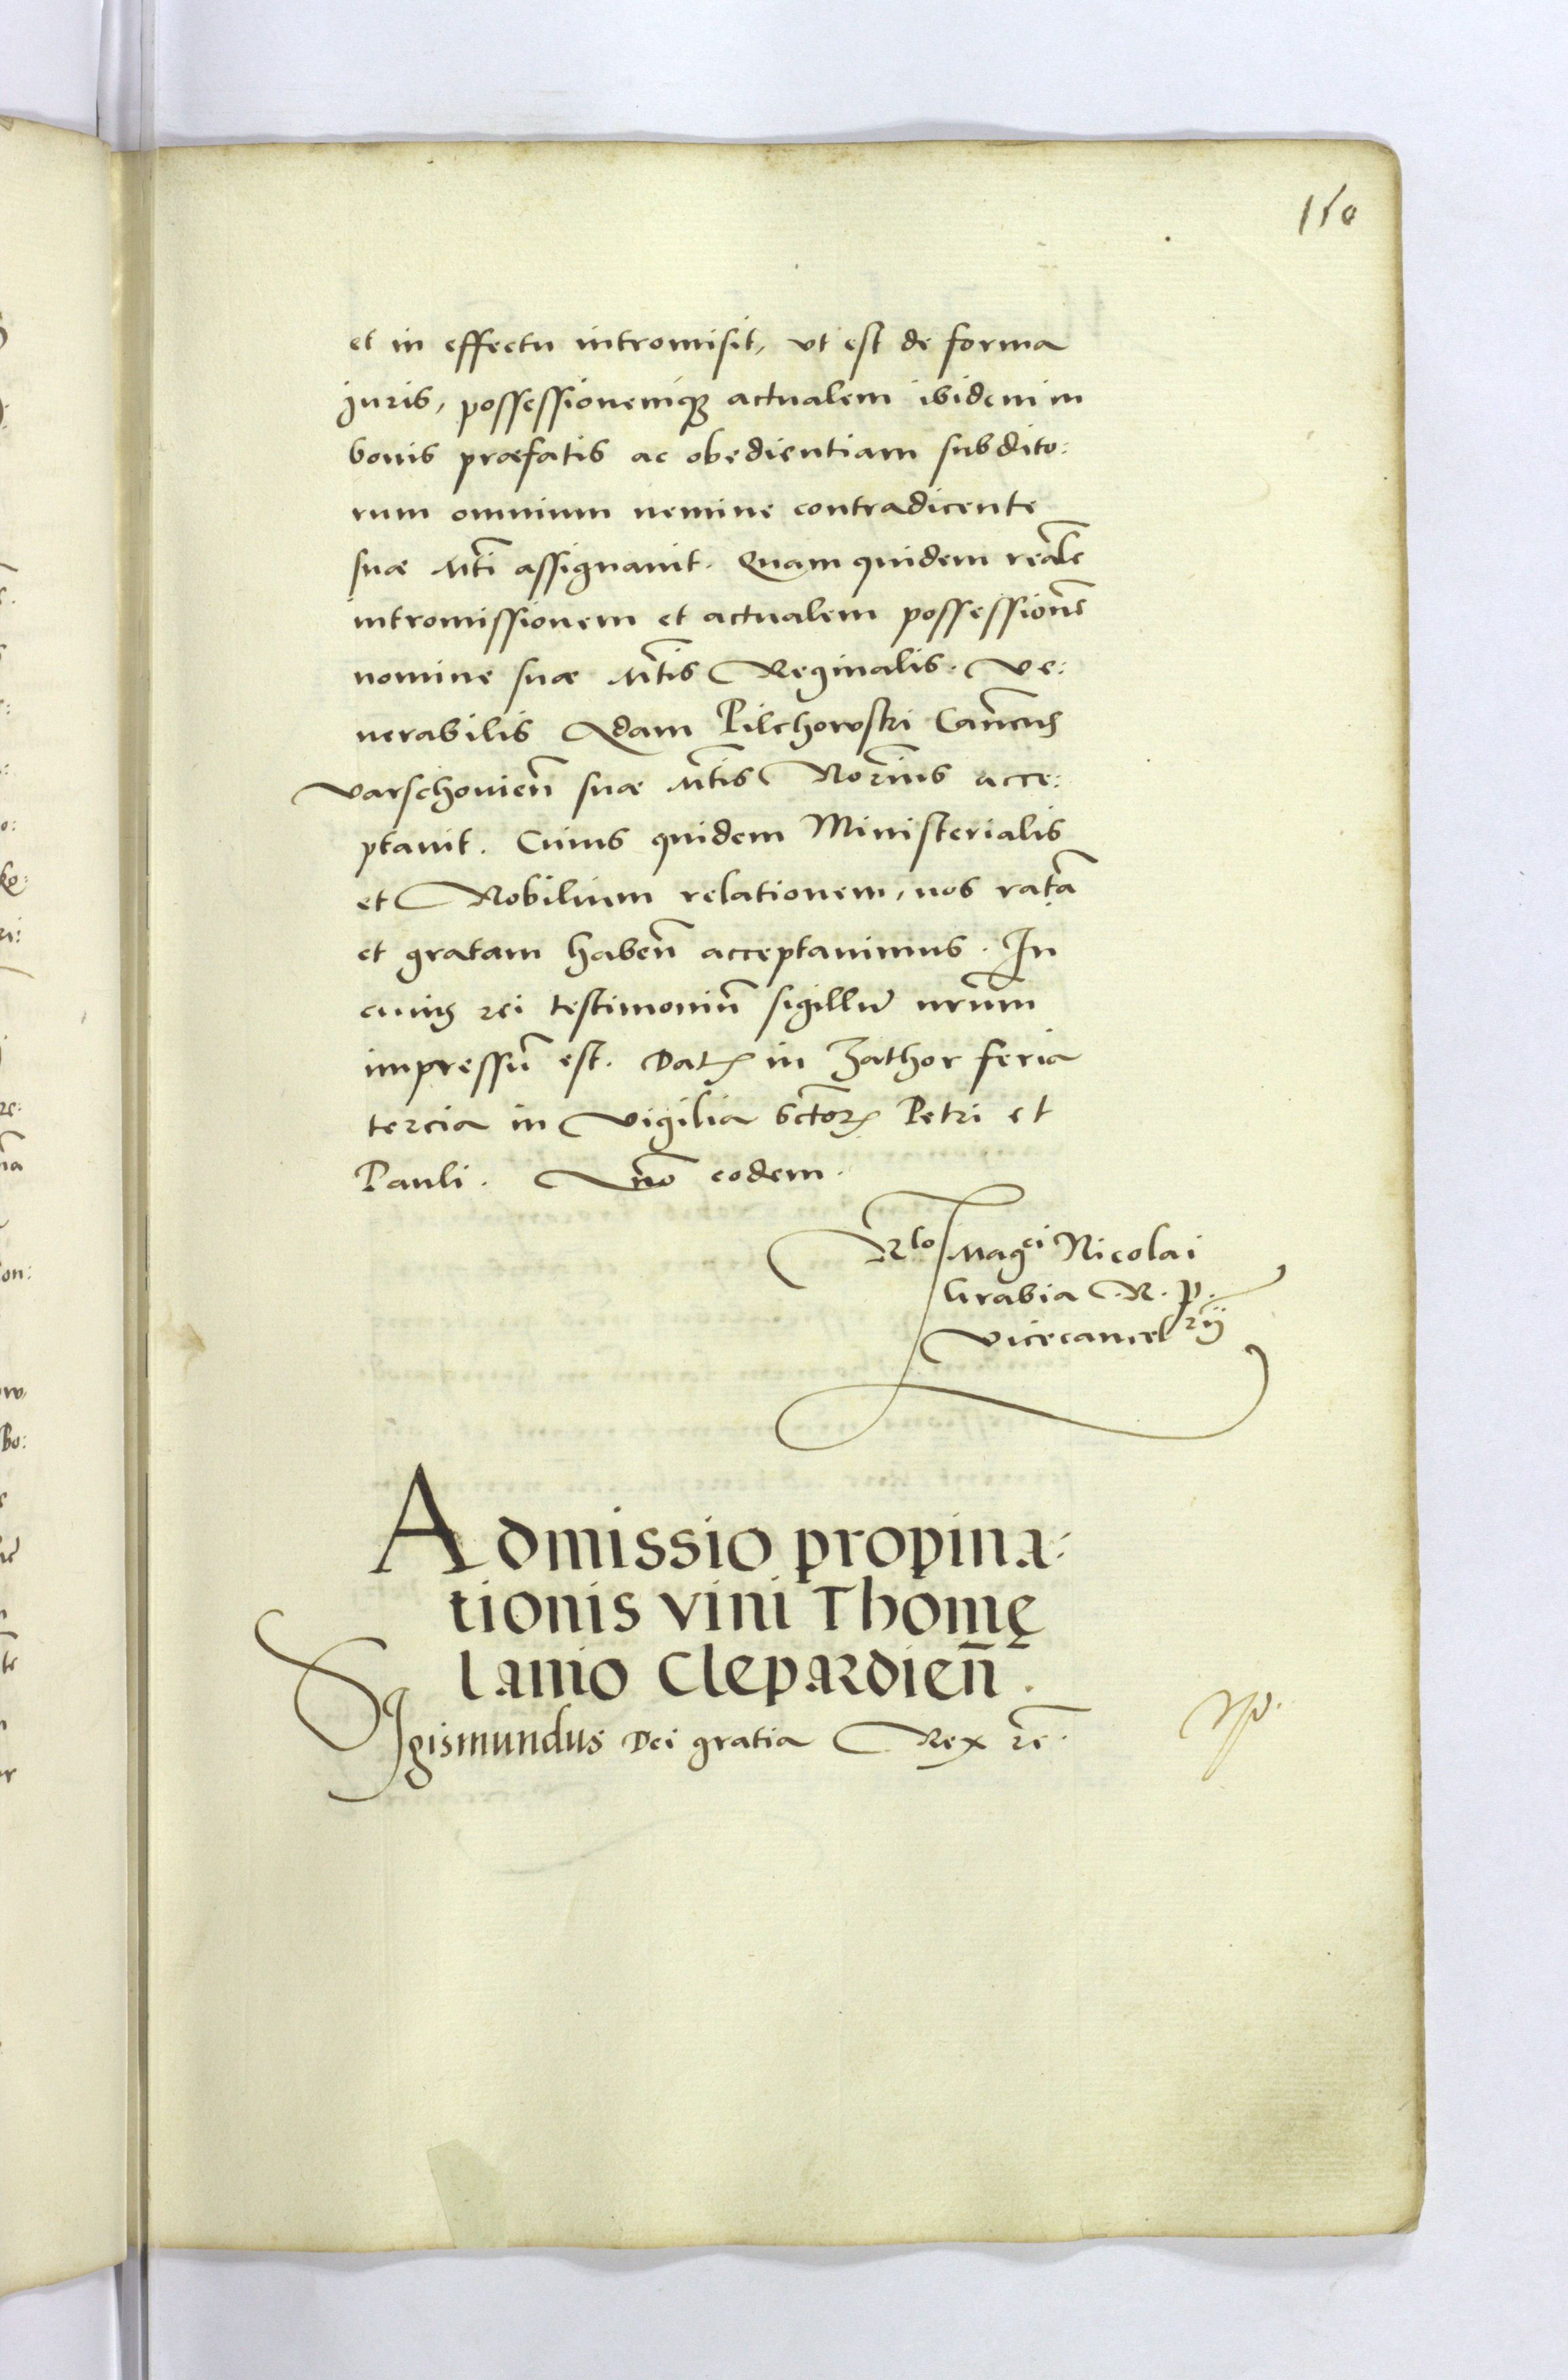 150
et in effectu intromisit, ut est de forma
juris, possessionemq(ue) actualem ibidem in
bonis præfatis ac obedientiam subdito:
rum omnium nemine contradicente
suæ Mti assignavit. Quam quidem reale
intromissionem et actualem possessione
nomine suæ Mtis Reginalis. Ve:
nerabilis Adam Pilchowski Canicus
Varschovien suæ Mtis Norius acce:
ptavit. Cuius quidem Ministerialis
et Nobilium relationem, nos ratā
et gratam haben acceptavimus. In
cuius rei testimoniū sigillū nrum
impressū est. Dat in Zathor feria
tercia in Vigilia Sctor Petri et
Pauli. Ano eodem.
Rlo Magci Nicolai
Grabia R. P.
Vicecancelrij
Admissio propina:
tionis vini Thomę
lanio Clepardien̄.
Sigismundus Dei gratia Rex rē.